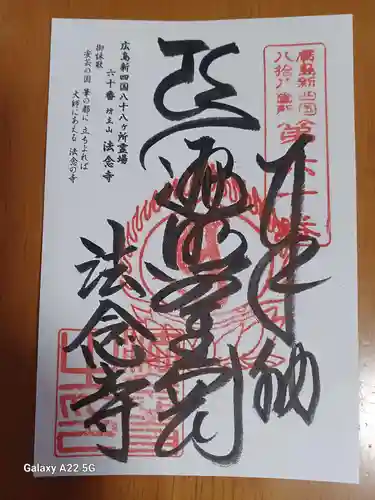 廣島新四国
八拾八ヶ所
第六十番
奉納
遍照金剛
法念寺
広島新四国八十八ヶ所霊場
六十番 竹立山 法念寺
御詠歌
安芸の国 筆の都に 立ちよれば
大師にあえる 法念の寺
Galaxy A22 5G